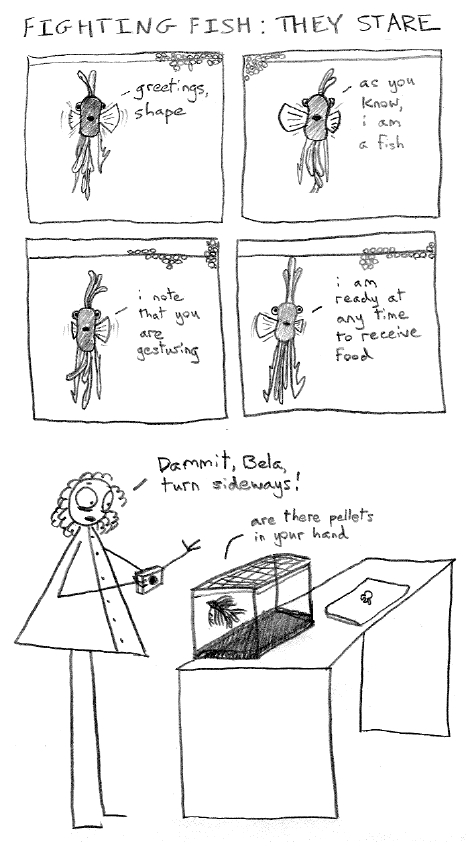 FIGHTING FISH: THEY STARE
greetings,
shape
as you
know,
i am
a fish
i note
that you
are
gesturing
i am
ready at
any time
to receive
food
Dammit, Bela,
turn sideways!
are there pellets
in your hand